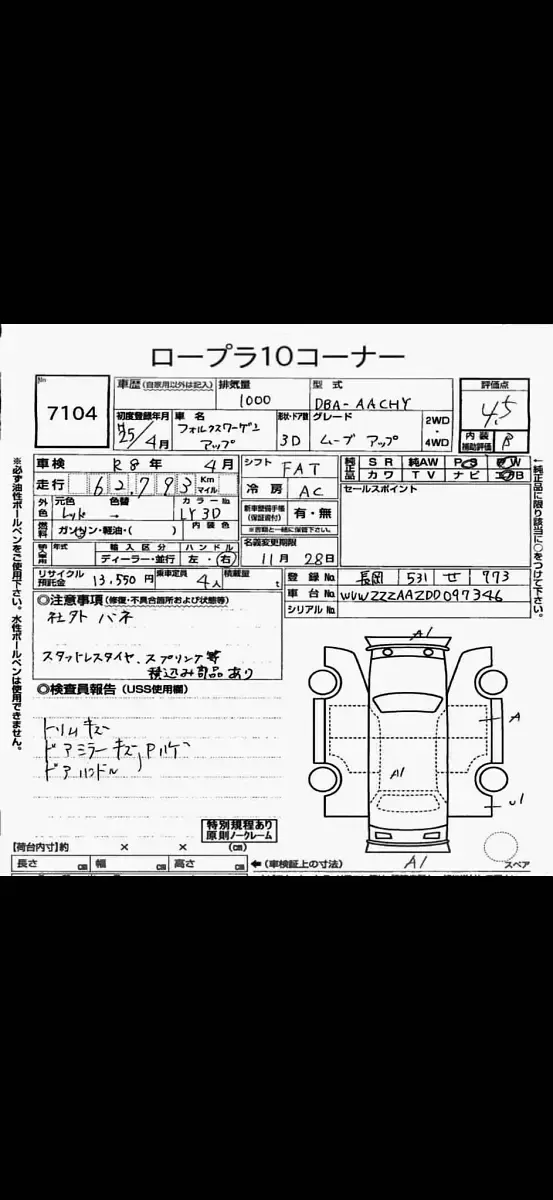 ロープラ10コーナー
No.
7104
車歴 (自家用以外は記入)
排気量
1000
型式
DBA-AACHY
評価点
4.5
初度登録年月
H25/4月
車名
フォルクスワーゲン
アップ
形状・ドア数
3D
グレード
ムーブ アップ
2WD
・
4WD
内装
補助評価
B
車検
R8年 4月
シフト
FAT
純正品
SR 純AW PS PW
カワ TV ナビ エアB
走行
62,793
Km
マイル
冷房
AC
セールスポイント
外色
元色
レッド
色替
→
カラーNo
LY3D
新車整備手帳
(保証書付)
有・無
※書類と一緒に保管下さい。
燃料
ガソリン・軽油・( )
内装色
年式
輸入区分
ディーラー・並行
ハンドル
左・右
名義変更期限
11月 28日
リサイクル
預託金
13,550円
乗車定員
4人
積載量
t
登録No.
長岡 531 せ 773
車台No.
WVWZZZAAZDD097346
シリアルNo.
◎注意事項 (修復・不具合箇所および状態等)
社外 バネ
スタットレスタイヤ、スプリング等
積込み部品あり
◎検査員報告 (USS使用欄)
トリムキズ
ドアミラーキズ
ドアハンドル
特別規程あり
原則ノークレーム
A1
A
A1
U1
A1
スペア
【荷台内寸】約 × × (cm)
長さ cm 幅 cm 高さ cm
←(車検証上の寸法)
※必ず油性ボールペンをご使用下さい。水性ボールペンは使用できません。
←純正品に限り該当に○をつけて下さい。